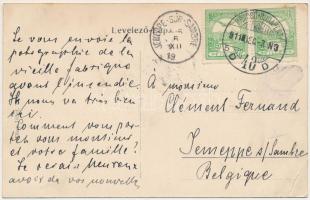 Levelező-
Je vous envoie la
photographie de la
vieille fabrique
avant l'incendie.
Ils vous va très bien
Comment vous por-
tez vous monsieur
et votre famille?
Je serais heureux
avoir de vos nouvelle
JEMEPPE-SUR-SAMBRE
XII
19
A monsieur
Clément Fernand
Jemeppe s/Sambre
Belgique